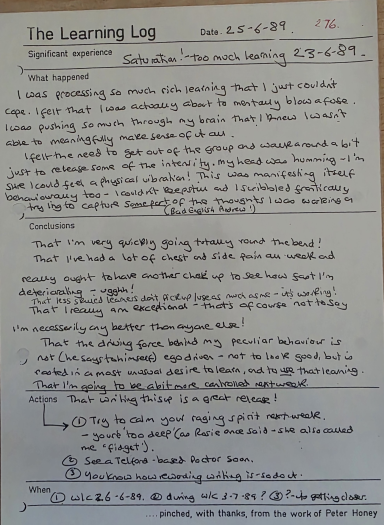 The Learning Log
Date. 25-6-89.
276.
Significant experience Saturation! - too much learning 23-6-89.
What happened
I was processing so much rich learning that I just couldn't
cope. I felt that I was actually about to mentally blow a fuse.
I was pushing so much through my brain that I knew I wasn't
able to meaningfully make sense of it all.
I felt the need to get out of the group and walk around a bit
just to release some of the intensity. My head was humming - I'm
sure I could feel a physical vibration! This was manifesting itself
behaviourally too - I couldn't keep still and I scribbled frantically
trying to capture some part of the thoughts I was working on
(Bad English Andrew!)
Conclusions
That I'm very quickly going totally round the bend!
That I've had a lot of chest and side pain all week and
really ought to have another check up to see how fast I'm
deteriorating - uggh!
That less skilled learners don't pick up / use as much as me - it's working!
That I really am exceptional - that's of course not to say
I'm necessarily any better than anyone else!
That the driving force behind my peculiar behaviour is
not (he says to himself) ego driven - not to look good, but is
rooted in a most unusual desire to learn, and to use that learning.
That I'm going to be a bit more controlled next week.
Actions That writing this up is a great release!
① Try to calm your raging spirit next week.
- you're 'too deep' (as Rosie once said - she also called
me "fidget").
② See a Telford-based Doctor soon.
③ You know how rewarding writing is - so do it.
When ① w/c 26-6-89. ② during w/c 3-7-89? ③ ? - getting closer.
.... pinched, with thanks, from the work of Peter Honey